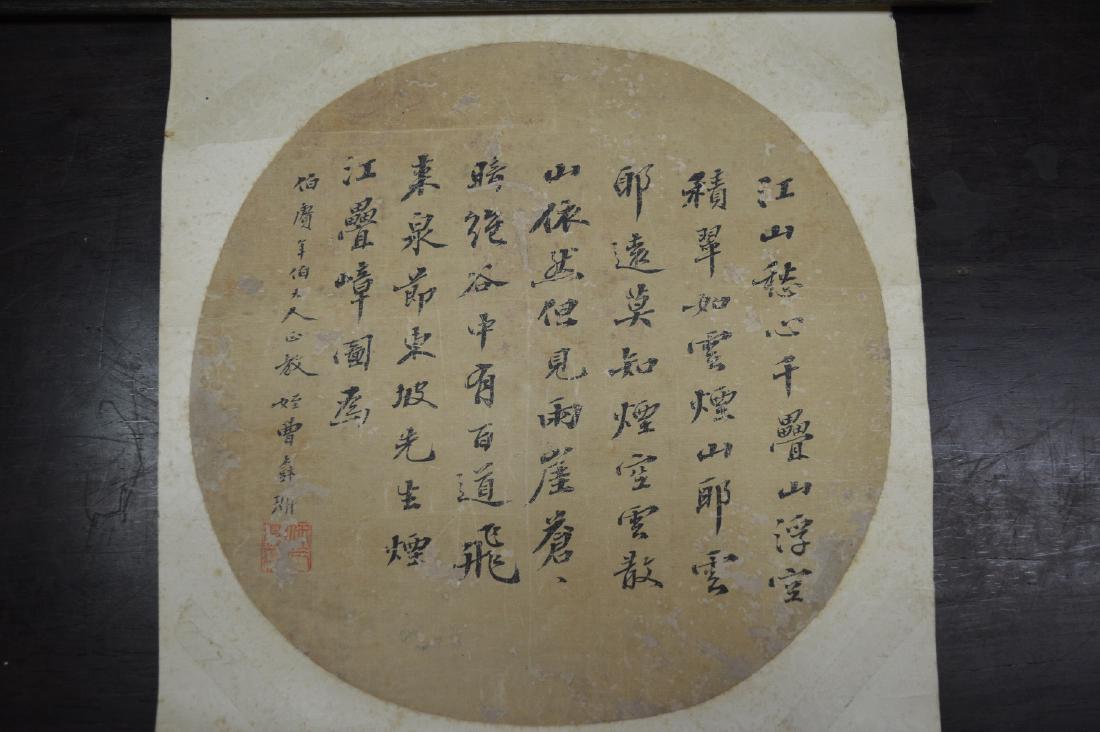 江山愁心千疊山浮空
積翠如雲煙山耶雲
耶遠莫知煙空雲散
山依然但見兩崖蒼〻
暗絕谷中有百道飛
來泉節東坡先生煙
江疊嶂圖奉
伯庸年伯大人正教
姪曹彝